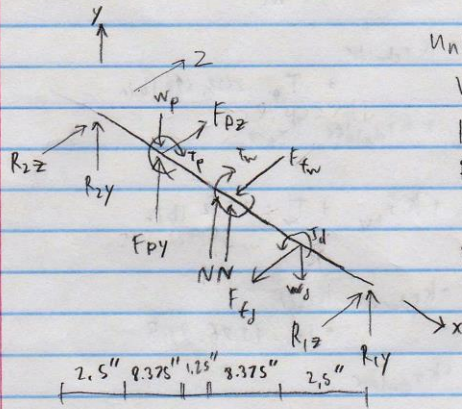 y
Z
Wp
Fpz
R2z
R2y
Tp
Tw
Ffw
Fpy
N N
Td
Ffd
Wd
R1z
R1y
x
2,5" 8.375" 1.25" 8.375" 2,5"